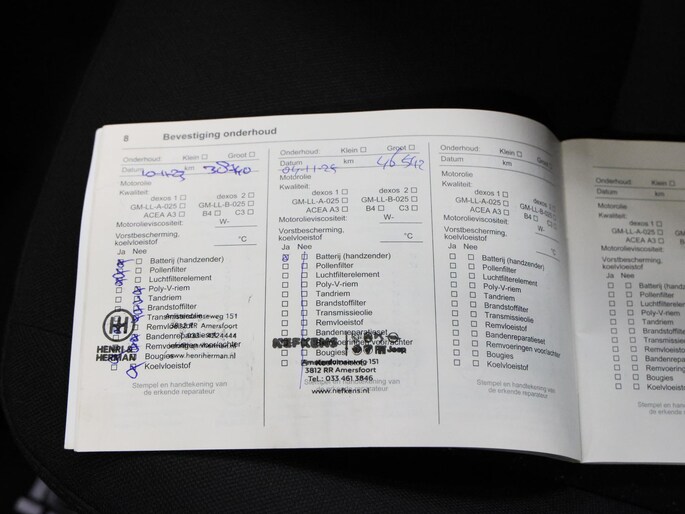 8 Bevestiging onderhoud
Onderhoud: Klein ☐ Groot ☐
Datum km
Motorolie
Kwaliteit: dexos 1 ☐ dexos 2 ☐
GM-LL-A-025 ☐ GM-LL-B-025 ☐
ACEA A3 ☐ B4 ☐ C3 ☐
Motorolieviscositeit: W-
Vorstbescherming, koelvloeistof °C
Ja Nee
Batterij (handzender)
Pollenfilter
Luchtfilterelement
Poly-V-riem
Tandriem
Brandstoffilter
Remvloeistof
Bougies
Koelvloeistof
HENRI & HERMAN
3812 RR Amersfoort
www.henriherman.nl
Stempel en handtekening van
de erkende reparateur
Onderhoud: Klein ☐ Groot ☐
Datum 04-11-25 km 46542
Motorolie
Kwaliteit: dexos 1 ☐ dexos 2 ☐
GM-LL-A-025 ☐ GM-LL-B-025 ☐
ACEA A3 ☐ B4 ☐ C3 ☐
Motorolieviscositeit: W-
Vorstbescherming,
koelvloeistof °C
Ja Nee
Batterij (handzender)
Pollenfilter
Luchtfilterelement
Poly-V-riem
Tandriem
Brandstoffilter
Transmissieolie
Remvloeistof
Bandenreparatieset
Bougies
NEFKENS Jeep
3812 RR Amersfoort
Tel.: 033 461 3846
www.nefkens.nl
Stempel en handtekening van
de erkende reparateur
Onderhoud: Klein ☐ Groot ☐
Datum km
Motorolie
Kwaliteit: dexos 1 ☐ dexos 2 ☐
GM-LL-A-025 ☐ GM-LL-B-025 ☐
ACEA A3 ☐ B4 ☐ C3 ☐
Motorolieviscositeit: W-
Vorstbescherming,
koelvloeistof °C
Ja Nee
Batterij (handzender)
Pollenfilter
Luchtfilterelement
Poly-V-riem
Tandriem
Brandstoffilter
Transmissieolie
Remvloeistof
Bandenreparatieset
Remvoeringen voor/achter
Bougies
Koelvloeistof
Stempel en handtekening van
de erkende reparateur
Onderhoud: Klein ☐
Datum km
Motorolie
Kwaliteit: dexos 1 ☐
GM-LL-A-025 ☐
ACEA A3 ☐
Motorolieviscositeit:
Vorstbescherming,
koelvloeistof
Ja Nee
Pollenfilter
Poly-V-riem
Tandriem
Brandstoffilter
Remvloeistof
Bougies
Koelvloeistof
Stempel en
de erkende